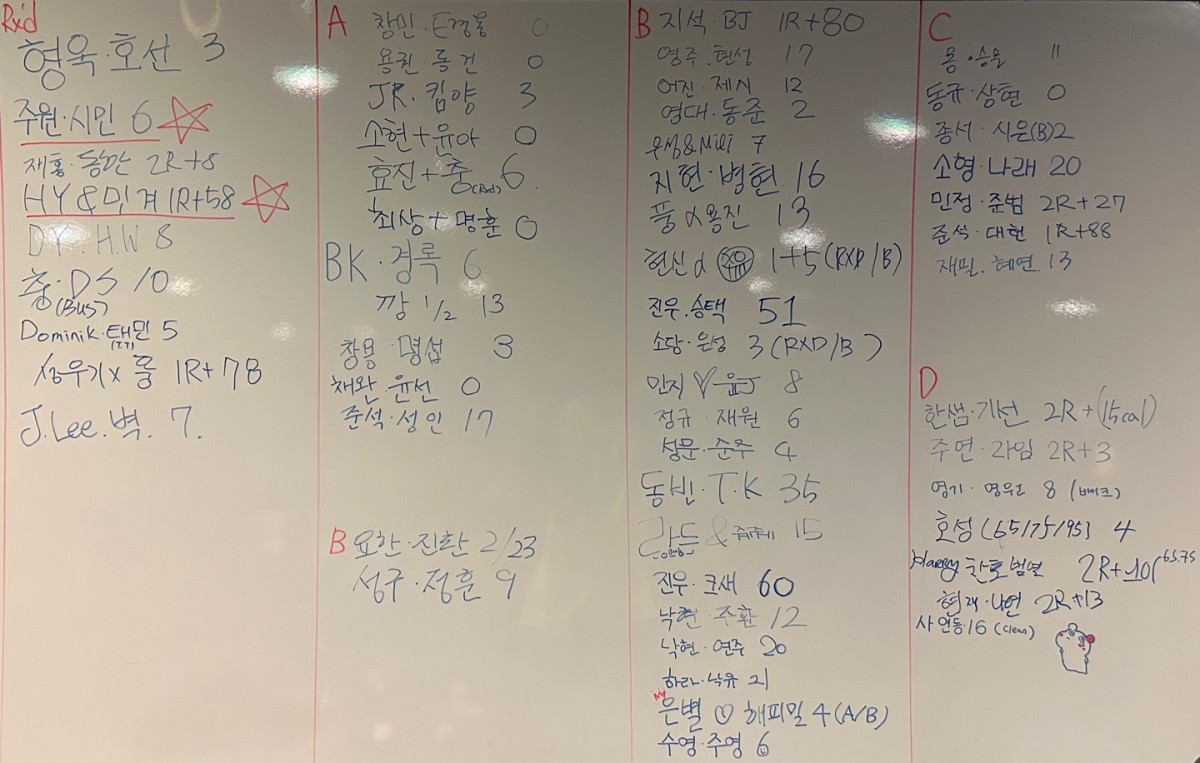 Rx'd
형욱·호선 3
주원·시민 6
재홍·동한 2R+8
HY&민계 1R+58
DY.H.W 8
충·DS 10
(Bus)
Dominik·태민 5
성우기x 풍 1R+78
J.Lee.벽. 7.
A
창민·E경몽 0
용권·동건 0
JR.킴양 3
소현+유아 0
효진+충(Rxd) 6
최상+명훈 0
BK·경록 6
깡 1/2 13
창용·명섭 3
채완·윤선 0
준석·성인 17
B 요한·진환 2/23
성구·정훈 9
B 지석·BJ 1R+80
영주.현성 17
어진·제시 12
영대·동준 2
7
지현·병현 16
풍 α 용진 13
현신 α 유 1+5 (RXD/B)
진우.승택 51
소당·은성 3 (RXD/B)
민지 ♡ 윤J 8
정규·재원 6
성문·순주 4
동빈·T.K 35
랴드 & 15
진우·크새 60
낙현·주환 12
낙현·연주 20
하라·낙유 21
은별 ♡ 해피밀 4 (A/B)
수영·주영 6
C
몽·승을 11
동규·상현 0
종서·시은(B) 2
소형·나래 20
민정·준범 2R+27
준석·대헌 1R+88
재필.혜연 13
D
한샘·기선 2R+(15cal)
주연·라임 2R+3
영기·영우 8 (베이크)
호성 (65/75/95) 4
Harry 찬호범열 2R+10(65.75
현래·나연 2R+13
사 연동 16 (Clean)